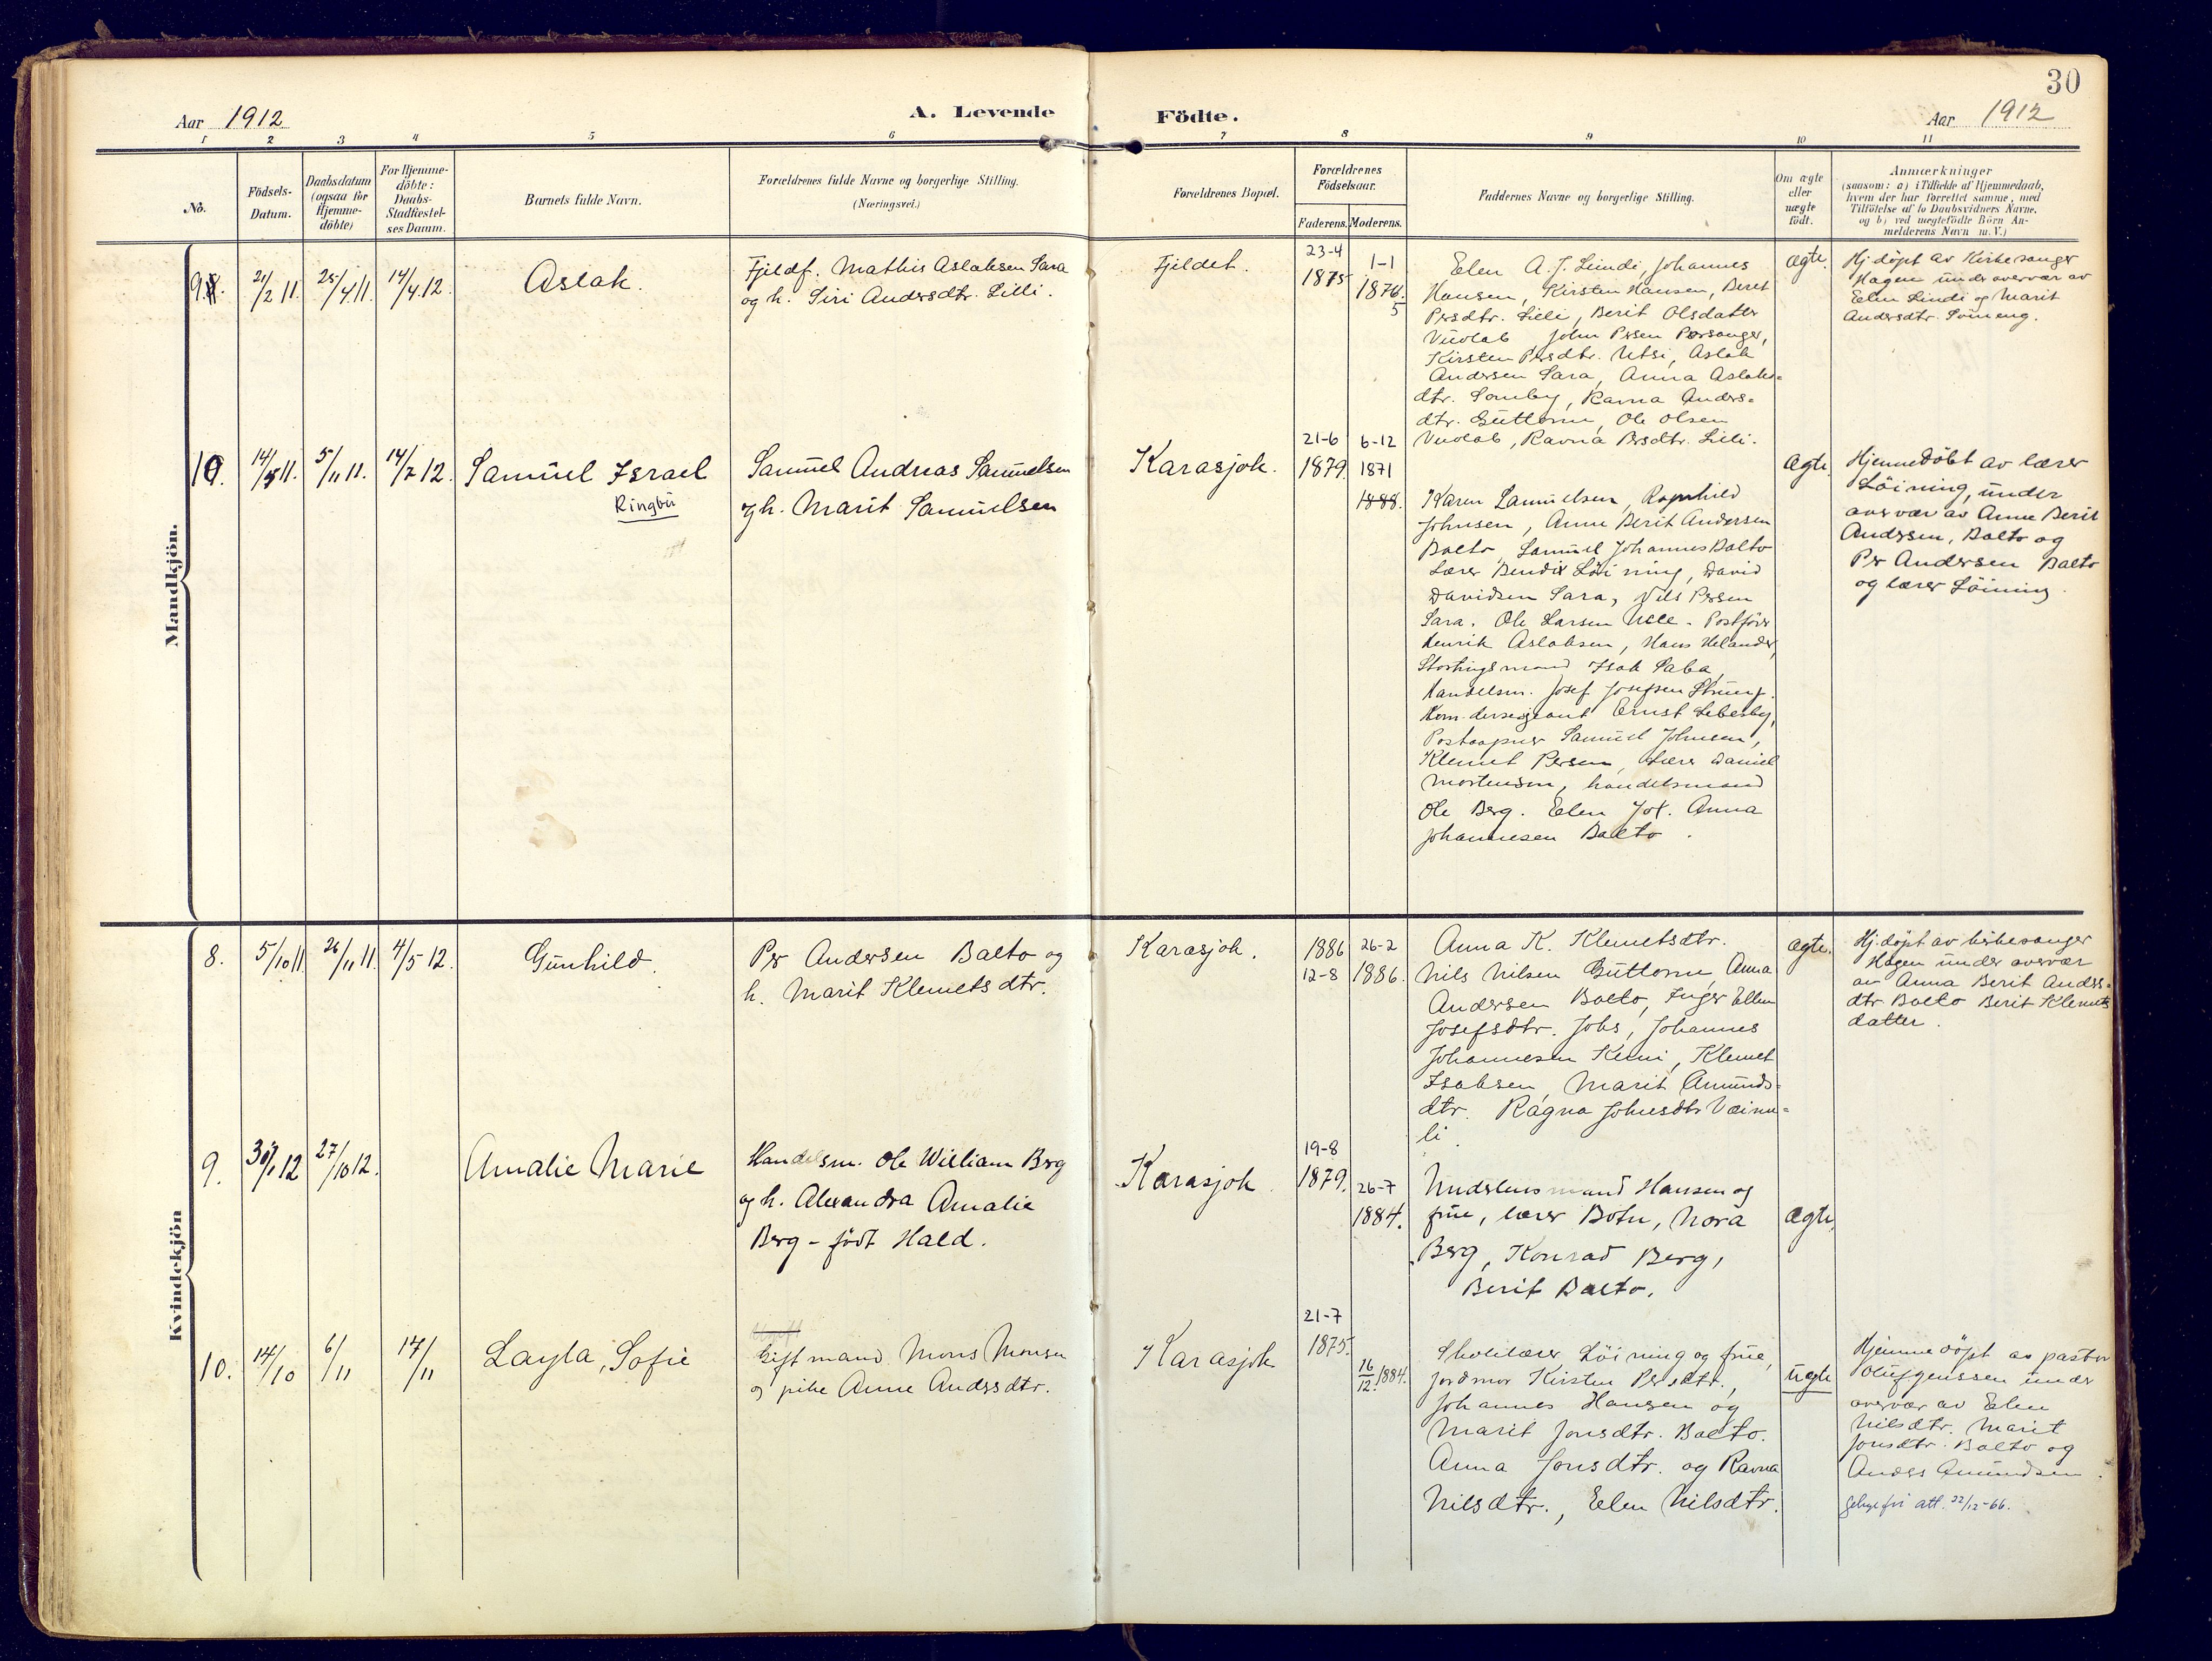 30
Aar 1912
A. Levende
Födte.
Aar 1912
1 2 3 4 5 6 7 8 9 10 11
No.
Födsels-
Datum.
Daabsdatum
(ogsaa for
Hjemme-
döbte)
For Hjemme-
döbte:
Daabs-
Stadfæstel-
ses Datum.
Barnets fulde Navn.
Forældrenes fulde Navne og borgerlige Stilling.
(Næringsvei.)
Forældrenes Bopæl.
Forældrenes
Födselsaar.
Faderens. Moderens.
Faddernes Navne og borgerlige Stilling.
Om ægte
eller
uægte
födt.
Anmærkninger
(saasom: a) i Tilfælde af Hjemmedaab,
hvem der har forrettet samme, med
Tilföielse af to Daabsvidners Navne,
og b) ved uægtefödte Börn An-
melderens Navn m. V.)
Mandkjön.
9.
21/2 11.
25/4 11.
14/4 12.
Aslak.
Fjeldf. Mathis Aslaksen Sara
og h. Siri Andersdtr. Lilli.
Fjeldet.
23-4
1875
1-1
1876.
5
Elen A. J. Lindi, Johannes
Hansen, Kirsten Hansen, Beret
Persdtr. Lilli, Berit Olsdatter
Vuolab John Persen Porsanger,
Kirsten Persdtr. Utsi, Aslak
Andersen Sara, Anna Aslaks-
dtr. Somby, Ravna Anders-
dtr. Guttorm, Ole Olsen
Vuolab, Ravna Persdtr. Lilli.
ægte.
Hj. döpt av Kirkesanger
Hagen under overvær av
Elen Lindi og Marit
Andersdtr.
10.
14/5 11.
5/11 11.
14/7 12.
Samuel Israel
Ringbu
Samuel Andreas Samuelsen
og h. Marit Samuelsen
Karasjok.
21-6
1879.
6-12
1871
1888.
Karen Samuelsen, Ragnhild
Johnsen, Anne Berit Andersen
Balto, Samuel Johannes Balto
Lærer Bendix Löining, David
Davidsen Sara, Nils Persen
Sara. Ole Larsen Postförer
Henrik Aslaksen, Hans Helander,
Stortingsmand Isak Saba,
Handelsm. Josef Josefsen
Ernst Lebesby,
Postaapner Samuel Johnsen,
Klemet Persen, Lærer Daniel
Mortensen, handelsmand
Ole Berg. Elen Anna
Johannesen Balto.
ægte.
Hjemmedöbt av lærer
Löining, under
overvær av Anne Berit
Andersen, Balto og
Per Andersen Balto
og lærer Löining.
Kvindekjön
8.
5/10 11
26/11 11.
4/5 12.
Gunhild.
Per Andersen Balto og
h. Marit Klemetsdtr.
Karasjok.
1886
12-8
26-2
1886.
Anna K. Klemetsdtr.
Nils Nilsen Guttorm, Anna
Andersen Balto, Inger Ellen
Josefsdtr. Johs, Johannes
Johannesen Kemi, Klemet
Isaksen, Marit Amunds-
dtr. Ragna Johnsdtr Væinu-
li.
ægte.
Hj. döpt av kirkesanger
Hagen under overvær
av Anna Berit Anders-
dtr Balto Berit Klemets
datter.
9.
12
27/10 12.
Amalie Marie
Handelsm. Ole William Berg
og h. Alexandra Amalie
Berg - født Hald.
Karasjok.
19-8
1879.
26-7
1884.
Underlensmand Hansen og
frue, lærer Botn, Nora
Berg, Konrad Berg,
Berit Balto.
ægte.
10.
14/10
6/11
17/11
Layla, Sofie
Gift mand Mons Monsen
og pike Anne Andersdtr.
Karasjok
21-7
1875.
16/12 1884.
Skolelærer Löining og frue,
jordmor Kirsten Persdtr.,
Johannes Hansen og
Marit Jonsdtr. Balto.
Anna Jonsdtr. og Ravna
Nilsdtr., Elen Nilsdtr.
uegte
Hjemmedöpt av pastor
under
overvær av Elen
Nilsdtr. Marit
Jonsdtr. Balto og
Anders Amundsen.
Gebyrfri att. 22/12-66.